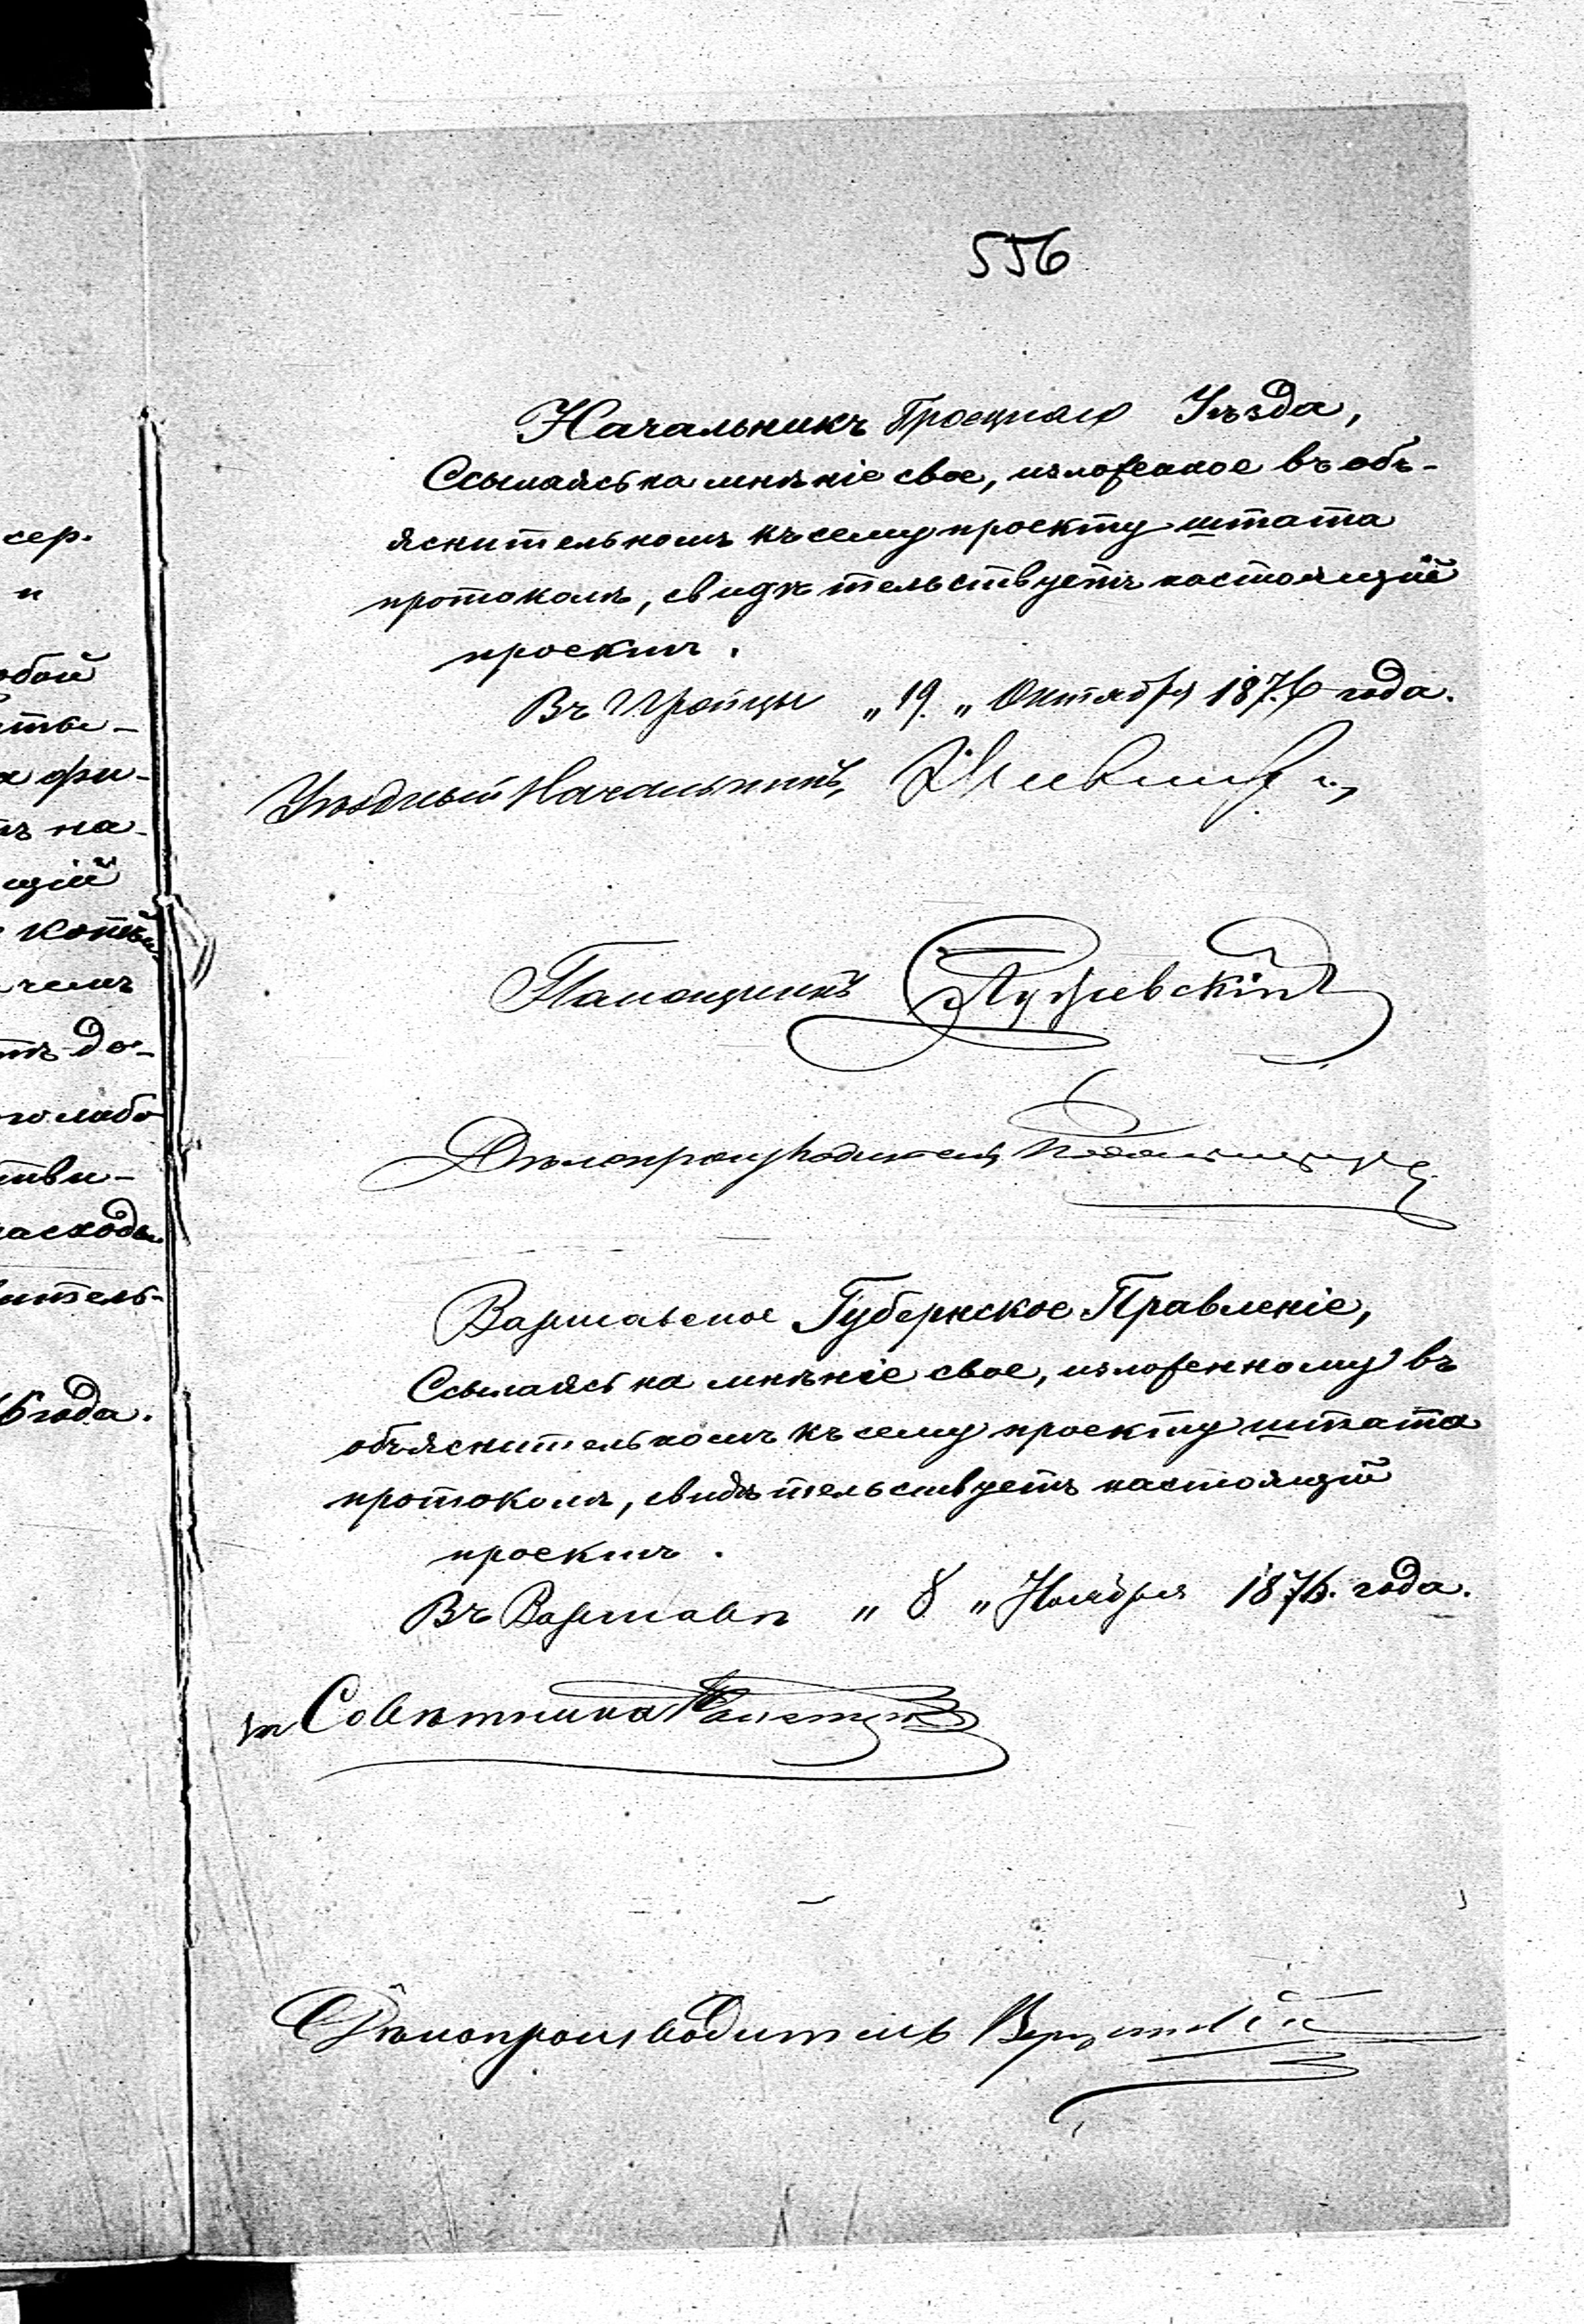 сер.
и
обой
фи-
на-
щій
чемъ
до-
расходы
6 года.
556
Начальникъ Гроецкаго Уѣзда,
Ссылаясь на мнѣніе свое, изложенное въ объ-
яснительномъ къ сему проекту штата
протоколѣ, свидѣтельствуетъ настоящій
проектъ.
Въ Гройцы „19„ Октября 1876 года.
Уѣздный Начальникъ,
Помощникъ
Дѣлопроизводитель
Варшавское Губернское Правленіе,
Ссылаясь на мнѣніе свое, изложенному въ
объяснительномъ къ сему проекту штата
протоколѣ, свидѣтельствуетъ настоящій
проектъ.
Въ Варшавѣ „8„ Ноября 1876. года.
Совѣтника
Дѣлопроизводитель